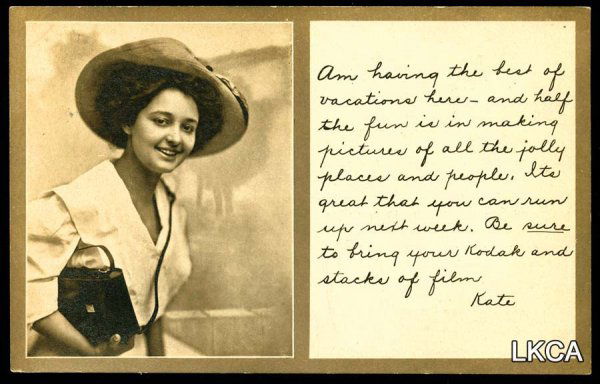 Am having the best of
vacations here – and half
the fun is in making
pictures of all the jolly
places and people. Its
great that you can run
up next week. Be sure
to bring your Kodak and
stacks of film
Kate
LKCA